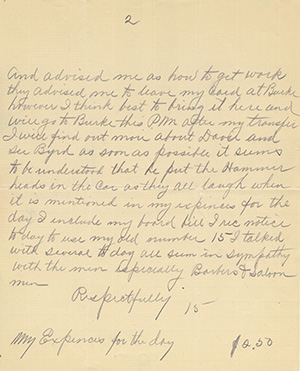 2
And advised me as how to get work
they advised me to leave my Card at Burke
however I think best to bring it here and
will go to Burke this P.M. after my transfer
I will find out more about Davis and
see Byrd as soon as possible it seems
to be understood that he put the Hammer
heads in the Car as they all laugh when
it is mentioned in my expences for the
day I include my board bill I rec notice
to day to use my old number 15 I talked
with several to day all seem in sympathy
with the men especially Barbers & Saloon
men
Respectfully
15
My Expences for the day $2.50